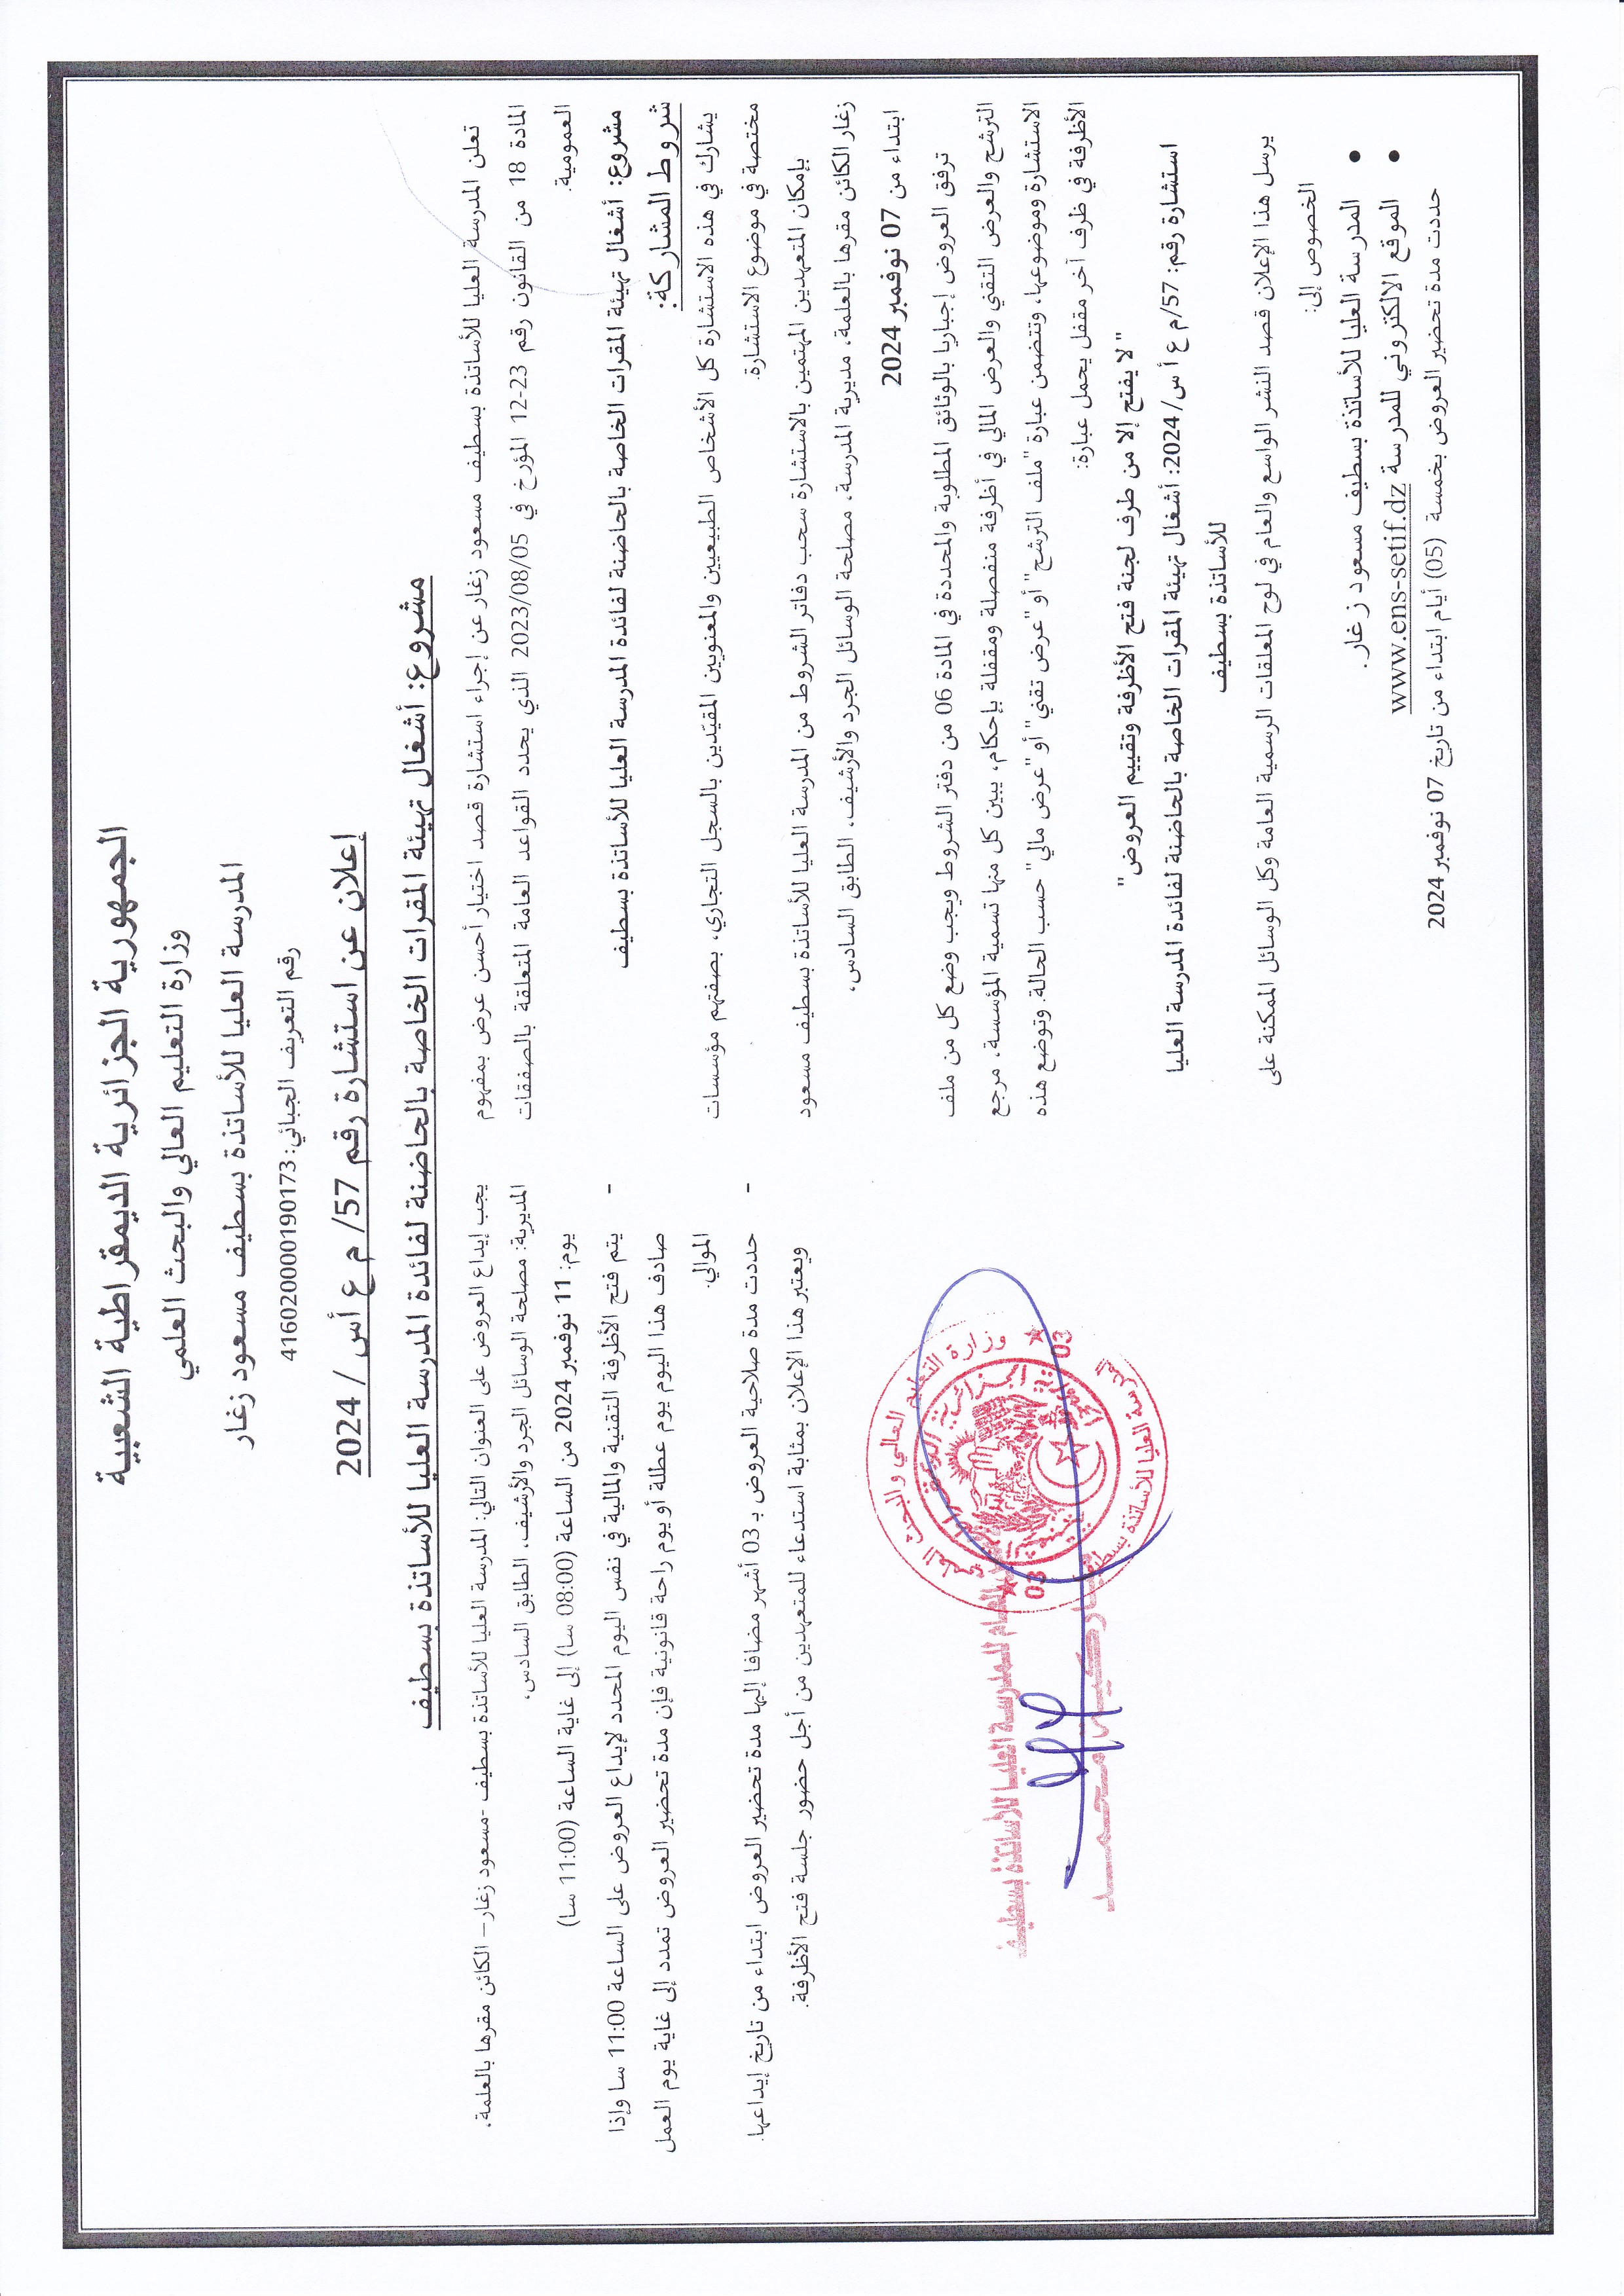 الجمهورية الجزائرية الديمقراطية الشعبية
وزارة التعليم العالي والبحث العلمي
المدرسة العليا للأساتذة بسطيف مسعود زغار
رقم التعريف الجبائي: 416020000190173
إعلان عن استشارة رقم 57/ م ع أس / 2024
مشروع: أشغال تهيئة المقرات الخاصة بالحاضنة لفائدة المدرسة العليا للأساتذة بسطيف
تعلن المدرسة العليا للأساتذة بسطيف مسعود زغار عن إجراء استشارة قصد اختيار أحسن عرض بمفهوم
المادة 18 من القانون رقم 23-12 المؤرخ في 2023/08/05 الذي يحدد القواعد العامة المتعلقة بالصفقات
العمومية.
مشروع: أشغال تهيئة المقرات الخاصة بالحاضنة لفائدة المدرسة العليا للأساتذة بسطيف
شروط المشاركة:
يشارك في هذه الاستشارة كل الأشخاص الطبيعيين والمعنويين المقيّدين بالسجل التجاري، بصفتهم مؤسسات
مختصة في موضوع الاستشارة.
بإمكان المتعهدين المهتمين بالاستشارة سحب دفاتر الشروط من المدرسة العليا للأساتذة بسطيف مسعود
زغار الكائن مقرها بالعلمة، مديرية المدرسة، مصلحة الوسائل الجرد والأرشيف، الطابق السادس،
ابتداء من 07 نوفمبر 2024
ترفق العروض إجباريا بالوثائق المطلوبة والمحددة في المادة 06 من دفتر الشروط ويجب وضع كل من ملف
الترشح والعرض التقني والعرض المالي في أظرفة منفصلة ومقفلة بإحكام، يبين كل منها تسمية المؤسسة، مرجع
الاستشارة وموضوعها، وتتضمن عبارة "ملف الترشح" أو "عرض تقني" أو "عرض مالي" حسب الحالة. وتوضع هذه
الأظرفة في ظرف آخر مقفل يحمل عبارة:
"لا يفتح إلا من طرف لجنة فتح الأظرفة وتقييم العروض"
استشارة رقم: 57/م ع أ س/2024: أشغال تهيئة المقرات الخاصة بالحاضنة لفائدة المدرسة العليا
للأساتذة بسطيف
يرسل هذا الإعلان قصد النشر الواسع والعام في لوح المعلقات الرسمية العامة وكل الوسائل الممكنة على
الخصوص إلى:
• المدرسة العليا للأساتذة بسطيف مسعود زغار.
• الموقع الالكتروني للمدرسة www.ens-setif.dz
حددت مدة تحضير العروض بخمسة (05) أيام ابتداء من تاريخ 07 نوفمبر 2024
يجب إيداع العروض على العنوان التالي: المدرسة العليا للأساتذة بسطيف -مسعود زغار– الكائن مقرها بالعلمة،
المديرية: مصلحة الوسائل الجرد والأرشيف، الطابق السادس،
يوم: 11 نوفمبر 2024 من الساعة (08:00 سا) إلى غاية الساعة (11:00 سا)
- يتم فتح الأظرفة التقنية والمالية في نفس اليوم المحدد لإيداع العروض على الساعة 11:00 سا وإذا
صادف هذا اليوم يوم عطلة أو يوم راحة قانونية فإن مدة تحضير العروض تمدد إلى غاية يوم العمل
الموالي.
- حددت مدة صلاحية العروض بـ 03 أشهر مضافا إليها مدة تحضير العروض ابتداء من تاريخ إيداعها.
ويعتبر هذا الإعلان بمثابة استدعاء للمتعهدين من أجل حضور جلسة فتح الأظرفة.
وزارة التعليم العالي و البحث العلمي
المدرسة العليا للأساتذة بسطيف
03
03
العام للمدرسة العليا للأساتذة بسطيف
محمد